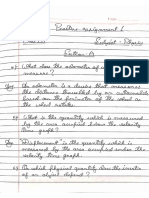 Positive assignment 1
Subject : Physics
Section - A
Q1. What does the odometer of
measure?
Ans. odometer is a device that measures
the distance travelled by an automobile
based on the perimeter of the wheel as
the wheel rotates.
Q2. What is the quantity which is measured
by the area occupied below the velocity
time graph?
Ans. Displacement is the quantity which is
measured by the area occupied below the
velocity time graph.
Q3. On which physical quantity does the inertia
of an object depend?